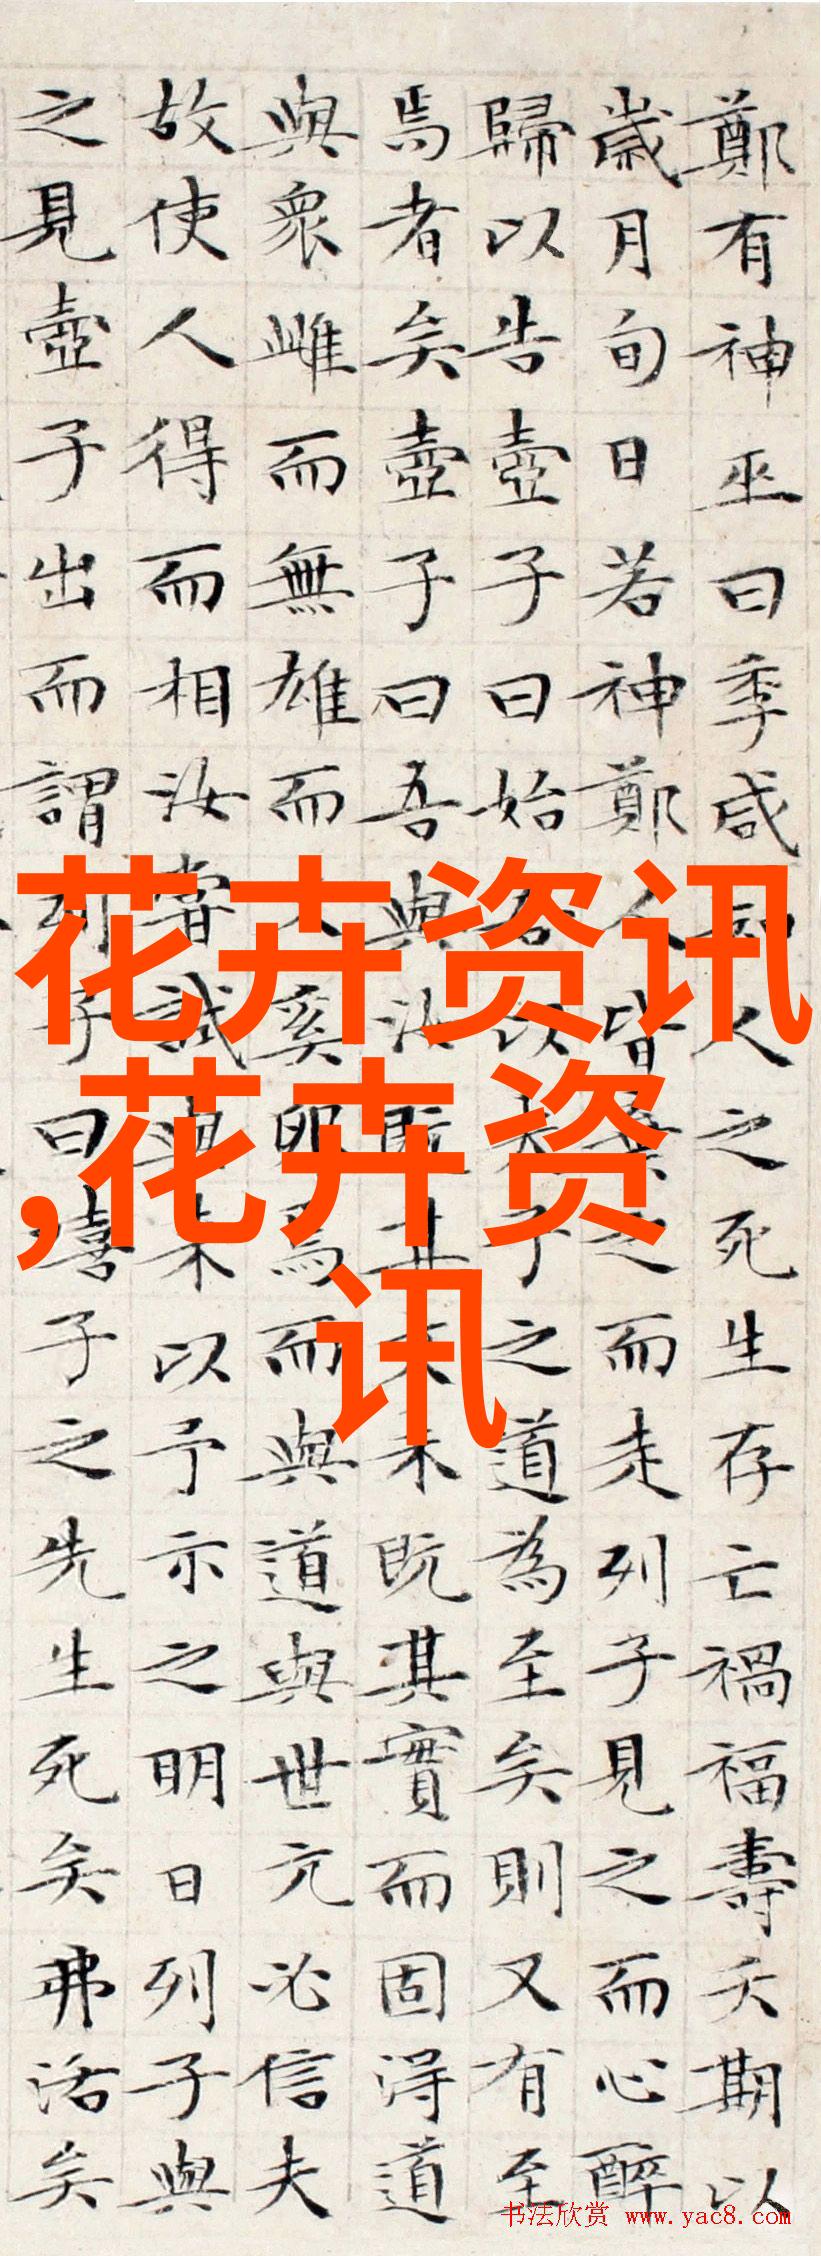 鄭有神巫曰季咸知人之死生存亡禍福壽夭期以
歲月旬日若神鄭人皆棄之而走列子見之而心醉
歸以告壺子曰始吾以夫子之道為至矣則又有至
焉者矣壺子曰吾與汝既其文未既其實而固得道
與眾雌而無雄而又奚卵焉而與道與世亢必信夫
故使人得而相汝嘗試與來以予示之明日列子與
之見壺子出而謂列子曰嘻子之先生死矣弗活矣
花卉资讯
,花卉资
讯
书法欣赏 www.yac8.com